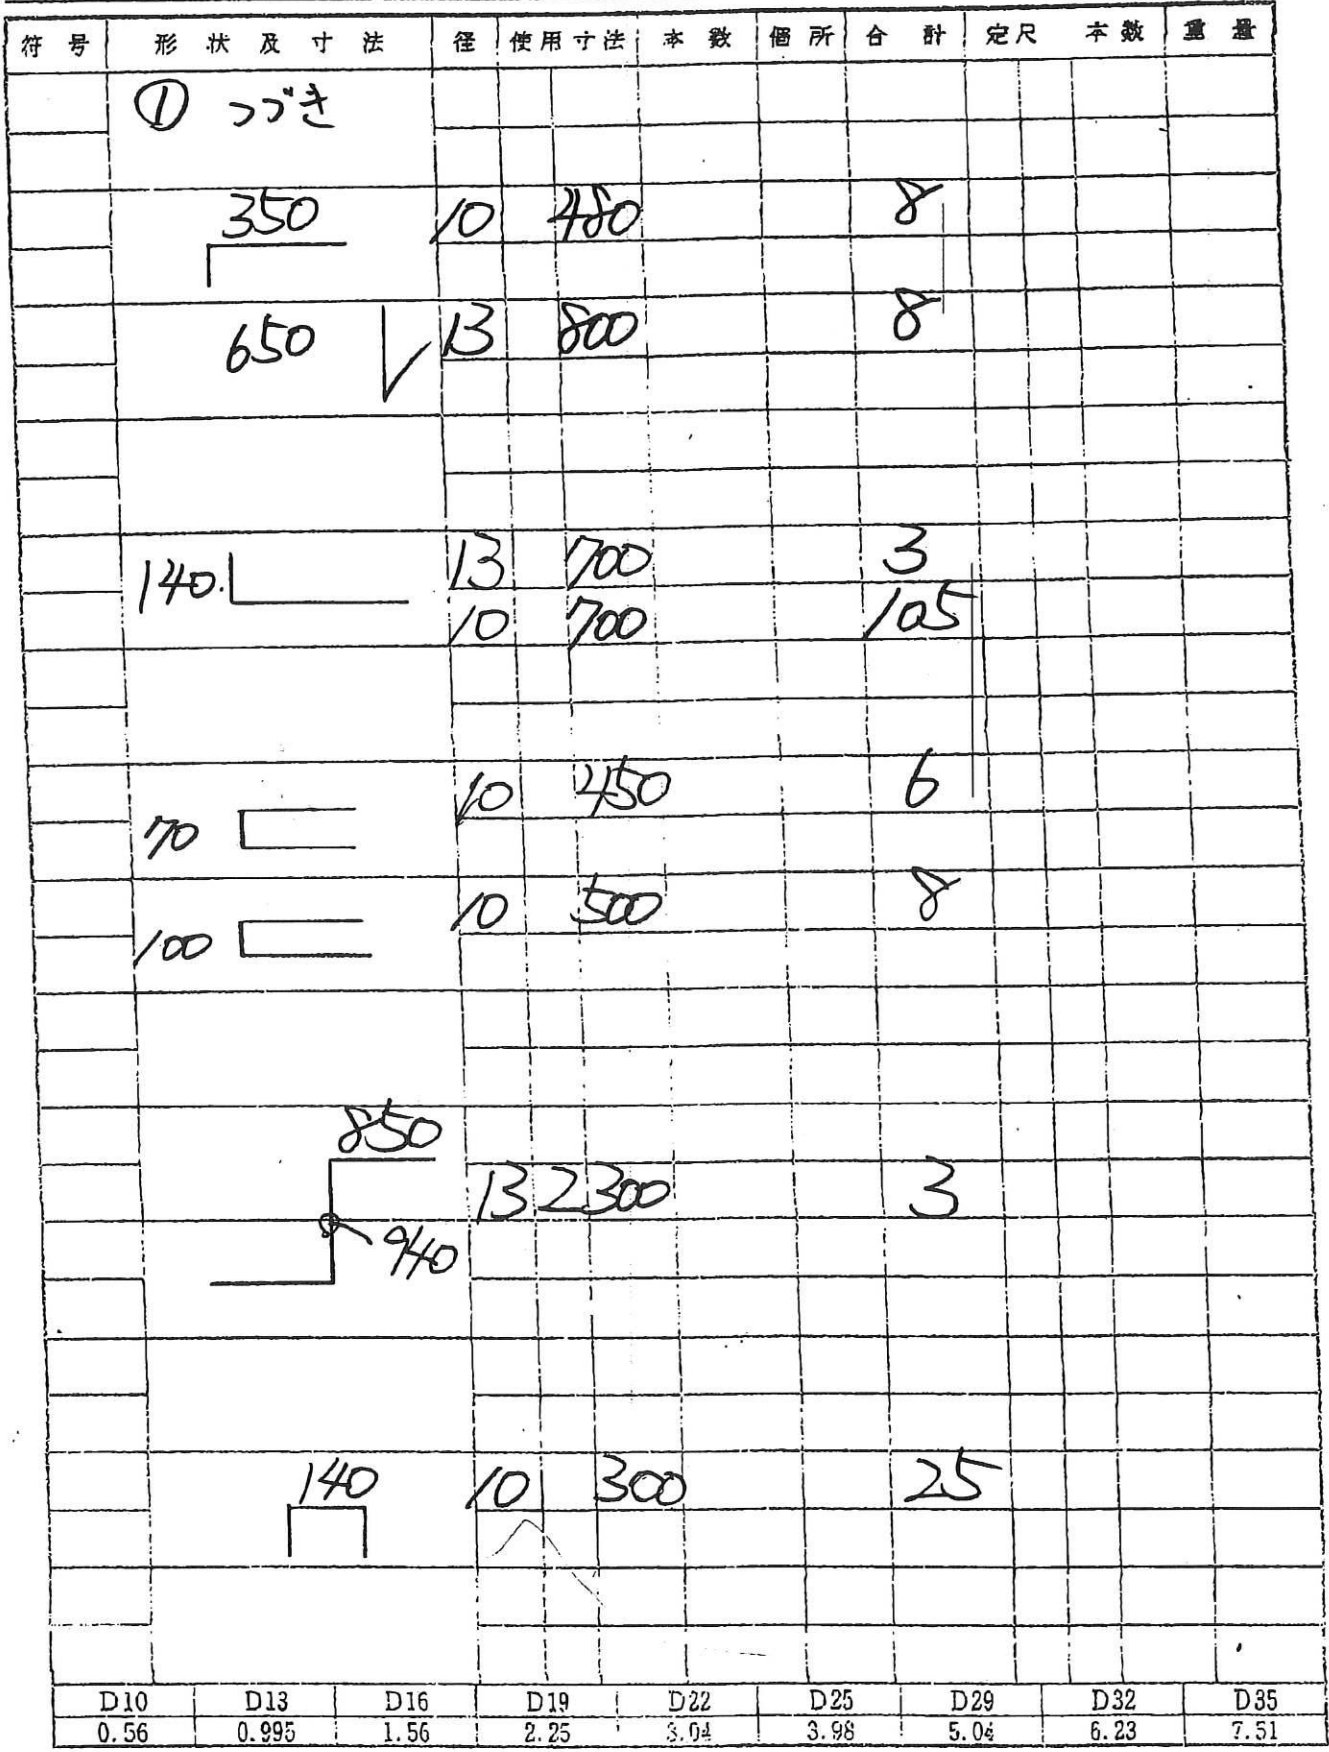 符号 形状及寸法 径 使用寸法 本数 個所 合計 定尺 本数 重量
① つづき
350 10 480 8
650 13 800 8
140 13 700 3
10 700 105
70 10 450 6
100 10 500 8
850
13 2300 3
940
140 10 300 25
D10 D13 D16 D19 D22 D25 D29 D32 D35
0.56 0.995 1.56 2.25 3.04 3.98 5.04 6.23 7.51